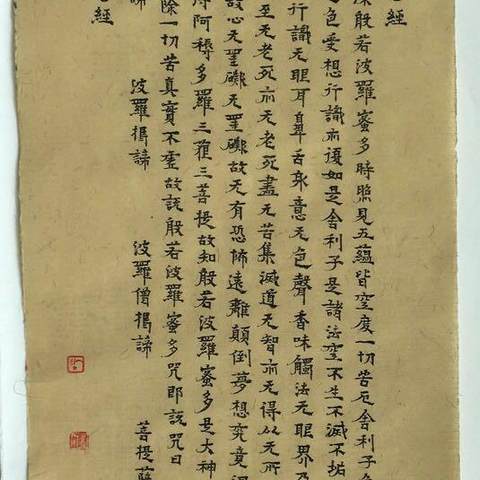 經
深般若波羅蜜多時照見五蘊皆空度一切苦厄舍利子色
色受想行識亦復如是舍利子是諸法空不生不滅不垢
行識无眼耳鼻舌身意无色聲香味觸法无眼界乃
至无老死亦无老死盡无苦集滅道无智亦无得以无所
故心无罣礙无罣礙故无有恐怖遠離顛倒夢想究竟涅
得阿耨多羅三藐三菩提故知般若波羅蜜多是大神
除一切苦真實不虛故說般若波羅蜜多咒即說咒曰
諦 波羅揭諦 波羅僧揭諦 菩提薩
經